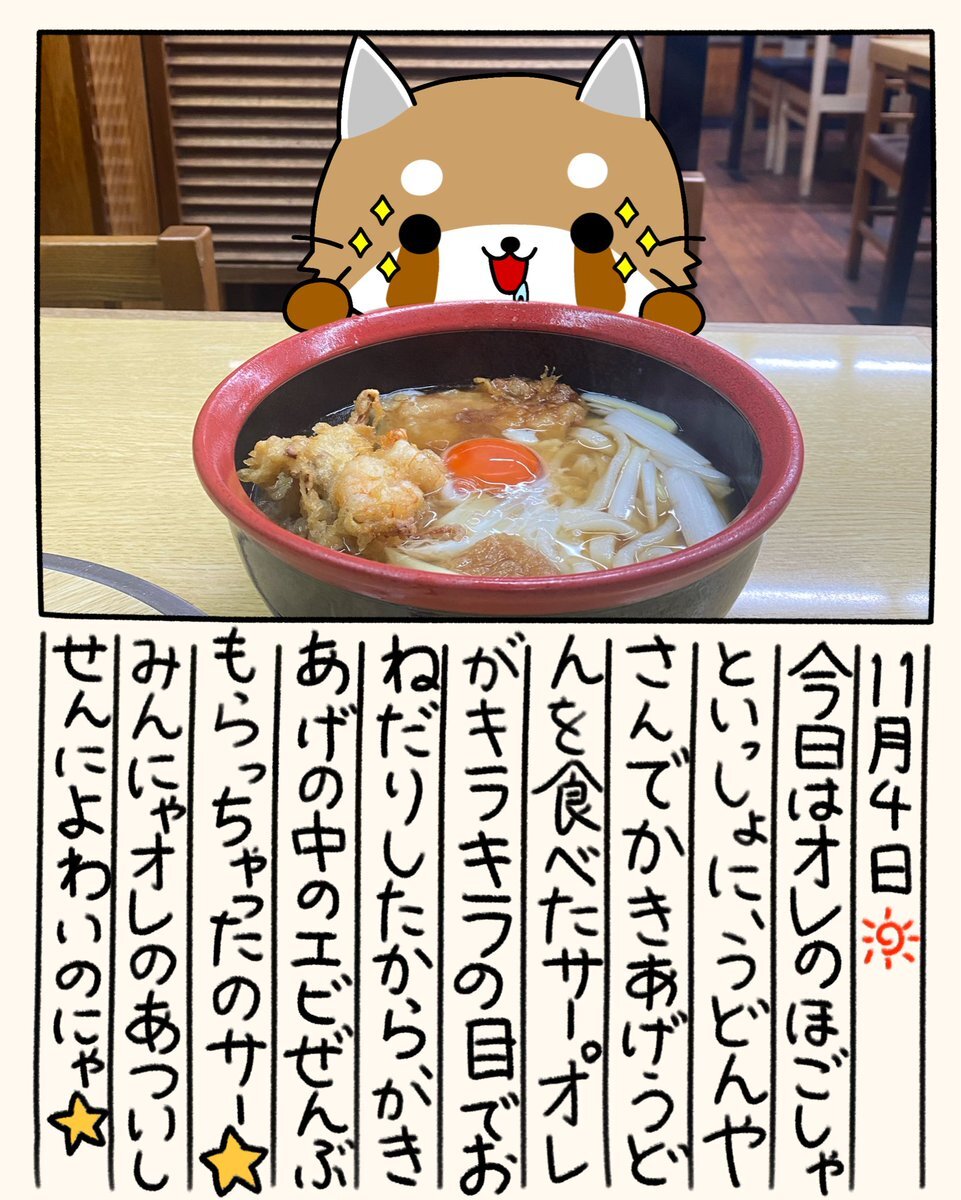 11月4日
今日はオレのほごしゃ
といっしょに、うどんや
さんでかきあげうど
んを食べたサー。オレ
がキラキラの目でお
ねだりしたから、かき
あげの中のエビぜんぶ
もらっちゃったのサー
みんにゃオレのあついし
せんによわいのにゃ